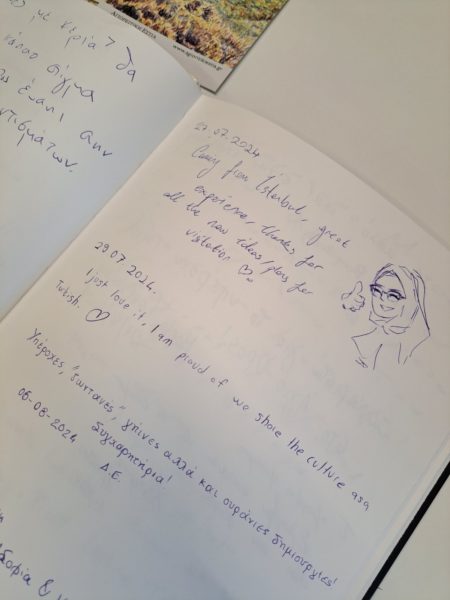 με κεριά? Θα
στίγμα
ένα,
www.agrovizion.gr
27.07.2024
Comy from İstanbul, great
experience, thanks for
all the new ideas/plans for
visitation ♡.
29.07.2024.
I just love it, I am proud of we share the culture asa
Turkish. ♡
Υπέροχες, "ζωντανές", γήινες αλλά και ουράνιες δημιουργίες!
Συγχαρητήρια!
06-08-2024
Δ.Ε.